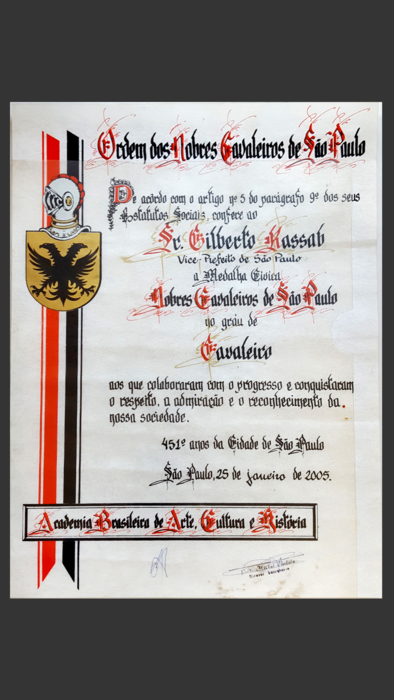 Ordem dos Nobres Cavaleiros de São Paulo
De acordo com o artigo nº 5 do parágrafo 9º dos seus
Estatutos Sociais, confece ao
Sr. Gilberto Kassab
Vice-Prefeito de São Paulo
a Medalha Cívica
Nobres Cavaleiros de São Paulo
no grau de
Cavaleiro
aos que colaboraram com o progresso e conquistaram
o respeito, a admiração e o reconhecimento da
nossa sociedade.
451º anos da Cidade de São Paulo
São Paulo, 25 de janeiro de 2005.
Academia Brasileira de Arte, Cultura e História